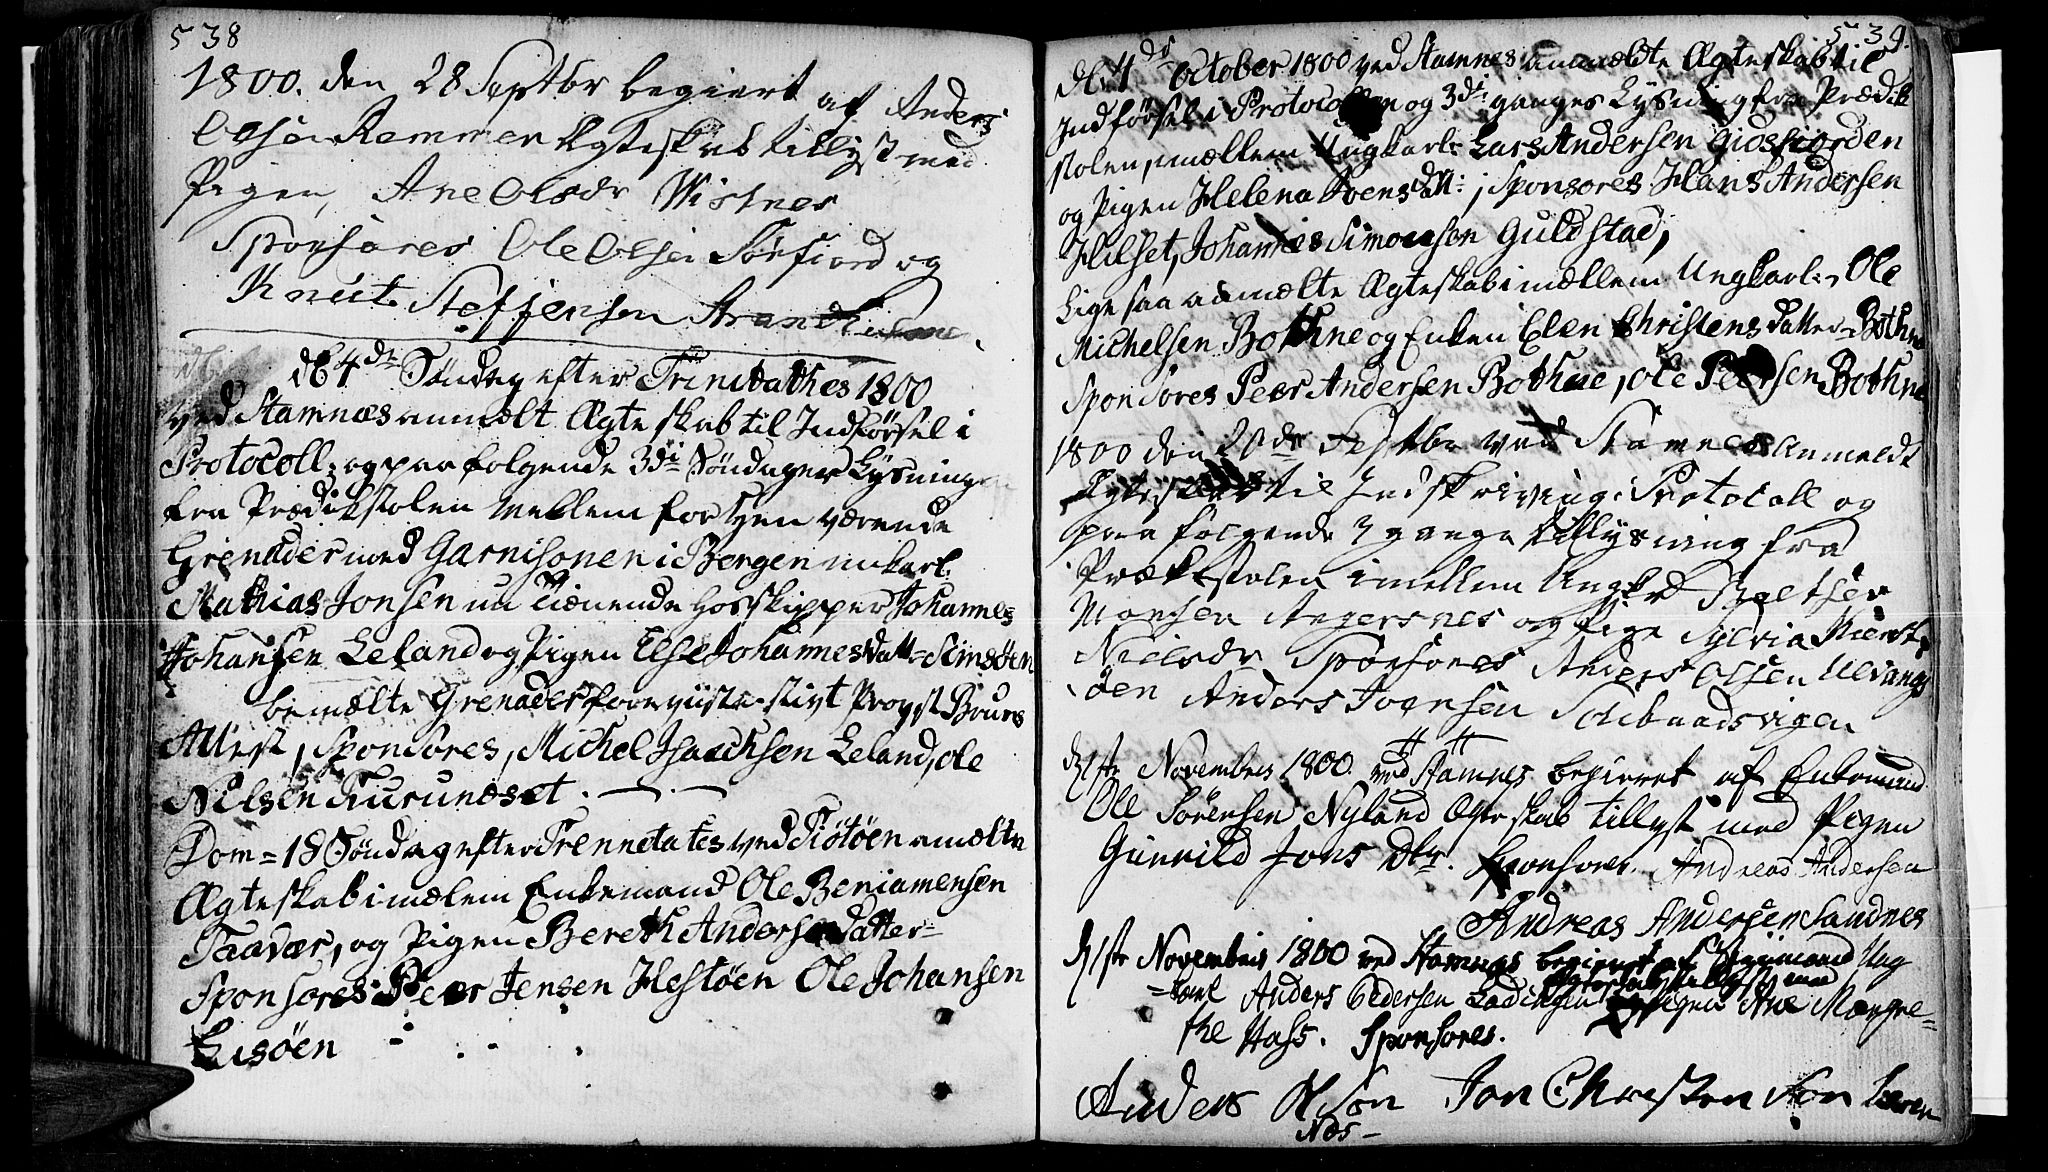 538
1800. den 28 Septbr begiert af Anders
Olsen Remmen Ægteskab tillyst med
Pigen, Ane Olsdr Wistnes
Sponsores Ole Olsen Sørfiord og
Knut Steffensen
d 4de Søndag efter Trinitathes 1800
ved Stamnæs anmælt Ægteskab til Indførsel i
Protocoll; og paa følgende 3di Søndager Lysning
fra Prædikstolen Mellem for hen værende
Grenader ved Garnisonen i Bergen unkarl
Mathias Jonsen nu Tienende hos Skipper Johannes
Johansen Leland og Pigen Else Johannes Datt
bemælte Grenader foreviiste sligt Provst Bruns
Attest, Sponsores, Michel Isaachsen Leland, Ole
Nilsen Turunæset.
Dom = 18 Søndag efter Trennetates ved Tiøtøen anmælte
Ægteskab imælem Enkemand Ole Beniamensen
Taavær, og Pigen Bereth Anders Datter
Sponsores Peer Jensen Hestøen Ole Johansen
Lisøen
539.
d 4de October 1800 ved Stamnes anmældte Ægteskab til
Indførsel i Protocollen og 3di ganges Lysning fra Prædik
stolen, imællem Ungkarl Lars Andersen Giosfiorden
og Pigen Helena Ivensdtr; Sponsores Hans Andersen
Hilset, Johannes Simonsen Guldstad,
Lige saa anmælte Ægteskab imællem Ungkarl Ole
Michelsen Bothne og Enken Elen Christens Datter Bothne
Sponsores Peer Andersen Bothne, Ole Peersen Bothne
1800 den 20de Septbr ved Stamnes Anmeldt
Ægteskab til Indskrivning i Protocoll og
paa følgende 3 gange tillysning fra
Prækestolen imellem Ungk
Monsen Angersnes og Pige Sylvia Kierst
Nielsdr Sponsores Anders Olsen Ulvangs
den Anders Ivensen Solibaadsvigen
d 1ste Novembris 1800. ved Stamnes begieret af Enkemand
Ole Sørensen Nyland Ægteskab tillyst med Pigen
Gunnild Jons Dtr. Sponsores. Andreas Andersen
Andreas Andersen Sandnes
d 1ste Novembris 1800 ved Stamnes begieret af Ung
Ægteskab tillyst med
=karl Anders Pedersen Ladingen Pigen Ane Margre=
the Hass. Sponsores.
Anders Olson Jon Christensson
Næs